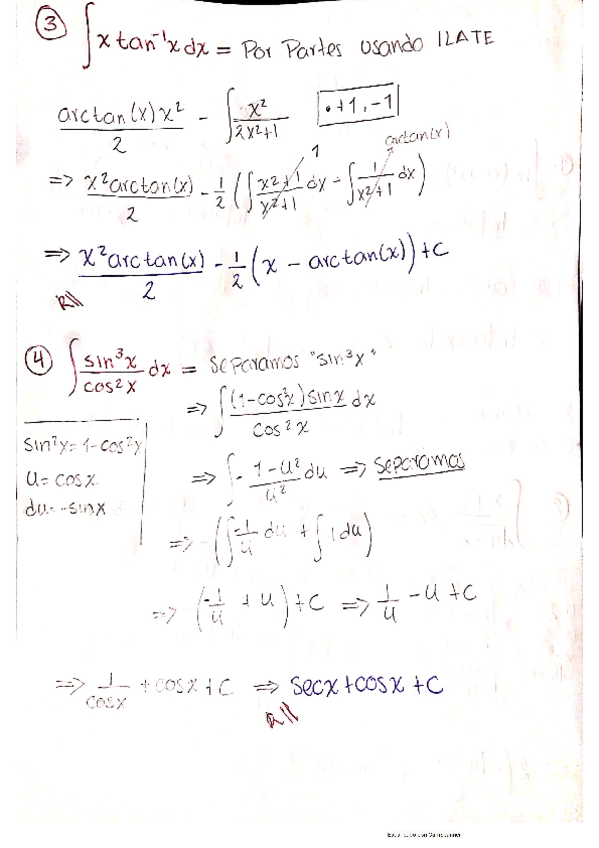 ③ ∫ x tan⁻¹x dx = Por Partes usando ILATE
arctan(x) x²/2 - ∫ x²/2x²+1 [•+1,-1]
arctan(x)
1
=> x² arctan(x)/2 - 1/2 (∫ x²+1/x²+1 dx - ∫ 1/x²+1 dx)
=> x² arctan(x)/2 - 1/2 (x - arctan(x)) + C
R//
④ ∫ sin³x/cos²x dx = separamos "sin³x"
=> ∫ (1-cos²x) sinx dx/cos²x
sin²x = 1-cos²x
u = cosx
du = -sinx
=> ∫ - 1-u²/u² du => separamos
=> -(∫ -1/u du + ∫ 1 du)
=> -(-1/u + u) + C => 1/u - u + C
=> 1/cosx + cosx + C => secx + cosx + C
R//